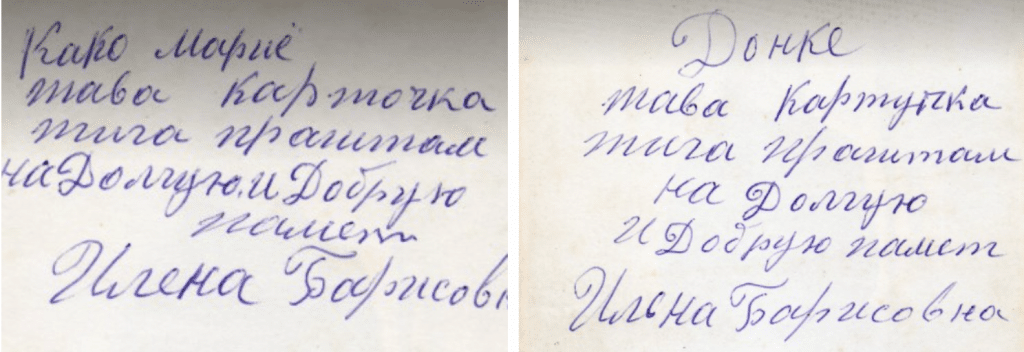 Како Марие
тава карточка
тига праштам
на Долгую и Добрую
памет
Илена Барисовн
Донке
тава картучка
тига праштам
на Долгую
и Добрую памет
Илена Барисовна